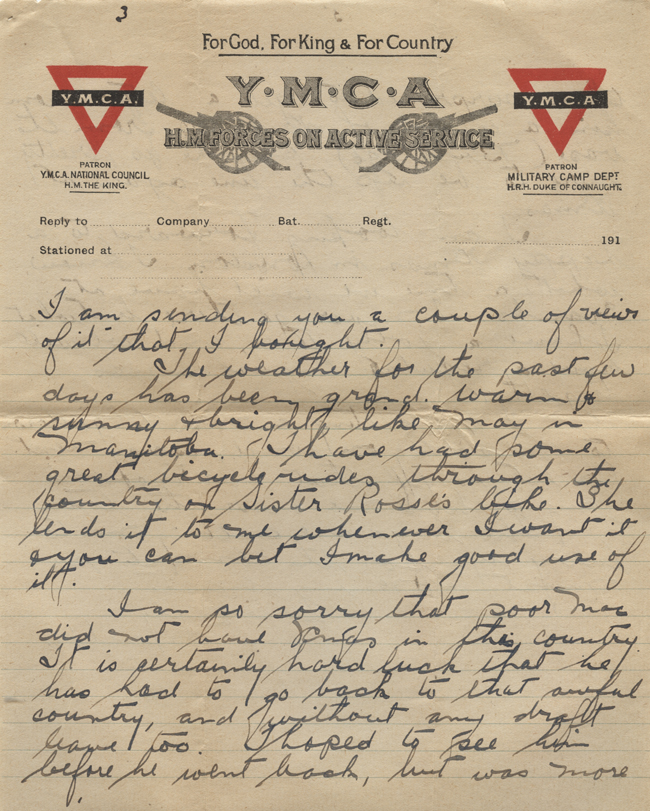 3
For God, For King & For Country
Y·M·C·A
H.M FORCES ON ACTIVE SERVICE
Y.M.C.A.
PATRON
Y.M.C.A. NATIONAL COUNCIL
H.M. THE KING.
Y.M.C.A.
PATRON
MILITARY CAMP DEPT
H.R.H. DUKE OF CONNAUGHT.
Reply to Company Bat. Regt.
Stationed at
191
I am sending you a couple of views
of it that I bought.
The weather for the past few
days has been grand. warm &
sunny & bright, like May in
Manitoba. I have had some
great bicycle rides through the
country on Sister Rosse's bike. She
lends it to me whenever I want it
& you can bet I make good use of
it.
I am so sorry that poor Mac
did not have Xmas in this country.
It is certainly hard luck that he
has had to go back to that awful
country, and without any draft
leave too. I hoped to see him
before he went back, but was more